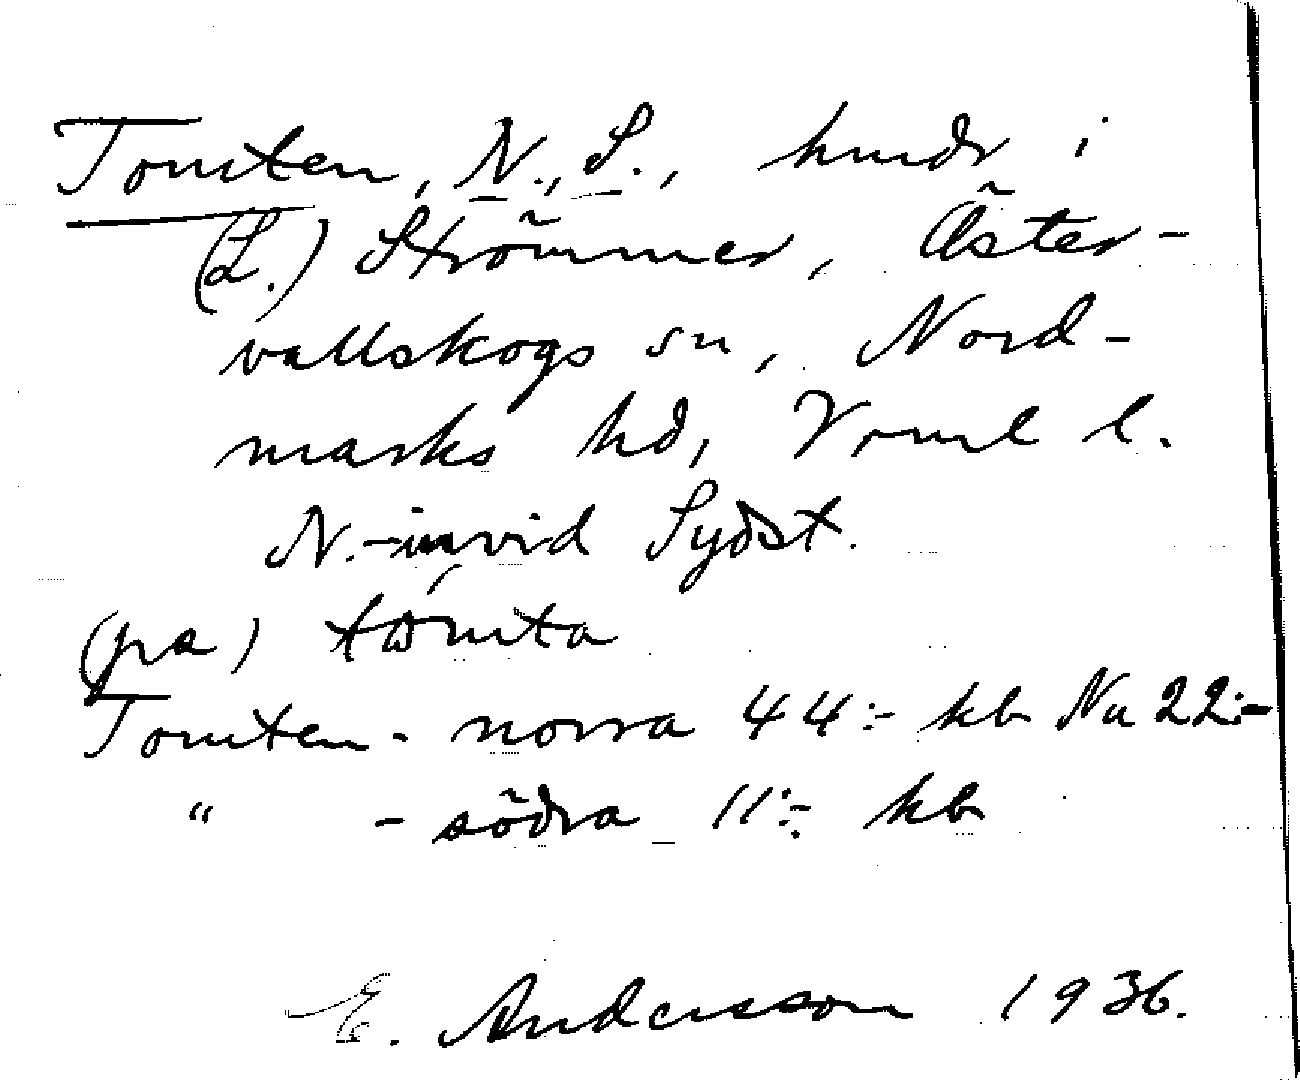 Tomten, N., S., hmdr i
(L.) Strömmer, Öster-
vallskogs sn, Nord-
marks hd, Vrml l.
N.- invid Sydst.
(pa) tòmta
Tomten - norra 44:- kb Nu 22:-
" - södra 11:- kb
E. Andersson 1936.